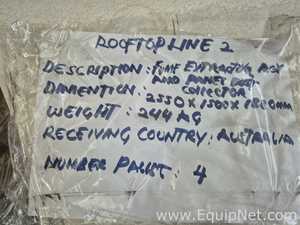 ROOFTOP LINE 2
DESCRIPTION: FUME EXTRACTOR BOX
AND PANEL DUST
COLLECTOR
DIMENTION: 2550X1500X1800MM
WEIGHT: 244 KG
RECEIVING COUNTRY: AUSTRALIA
NUMBER PACKET: 4
www.EquipNet.com